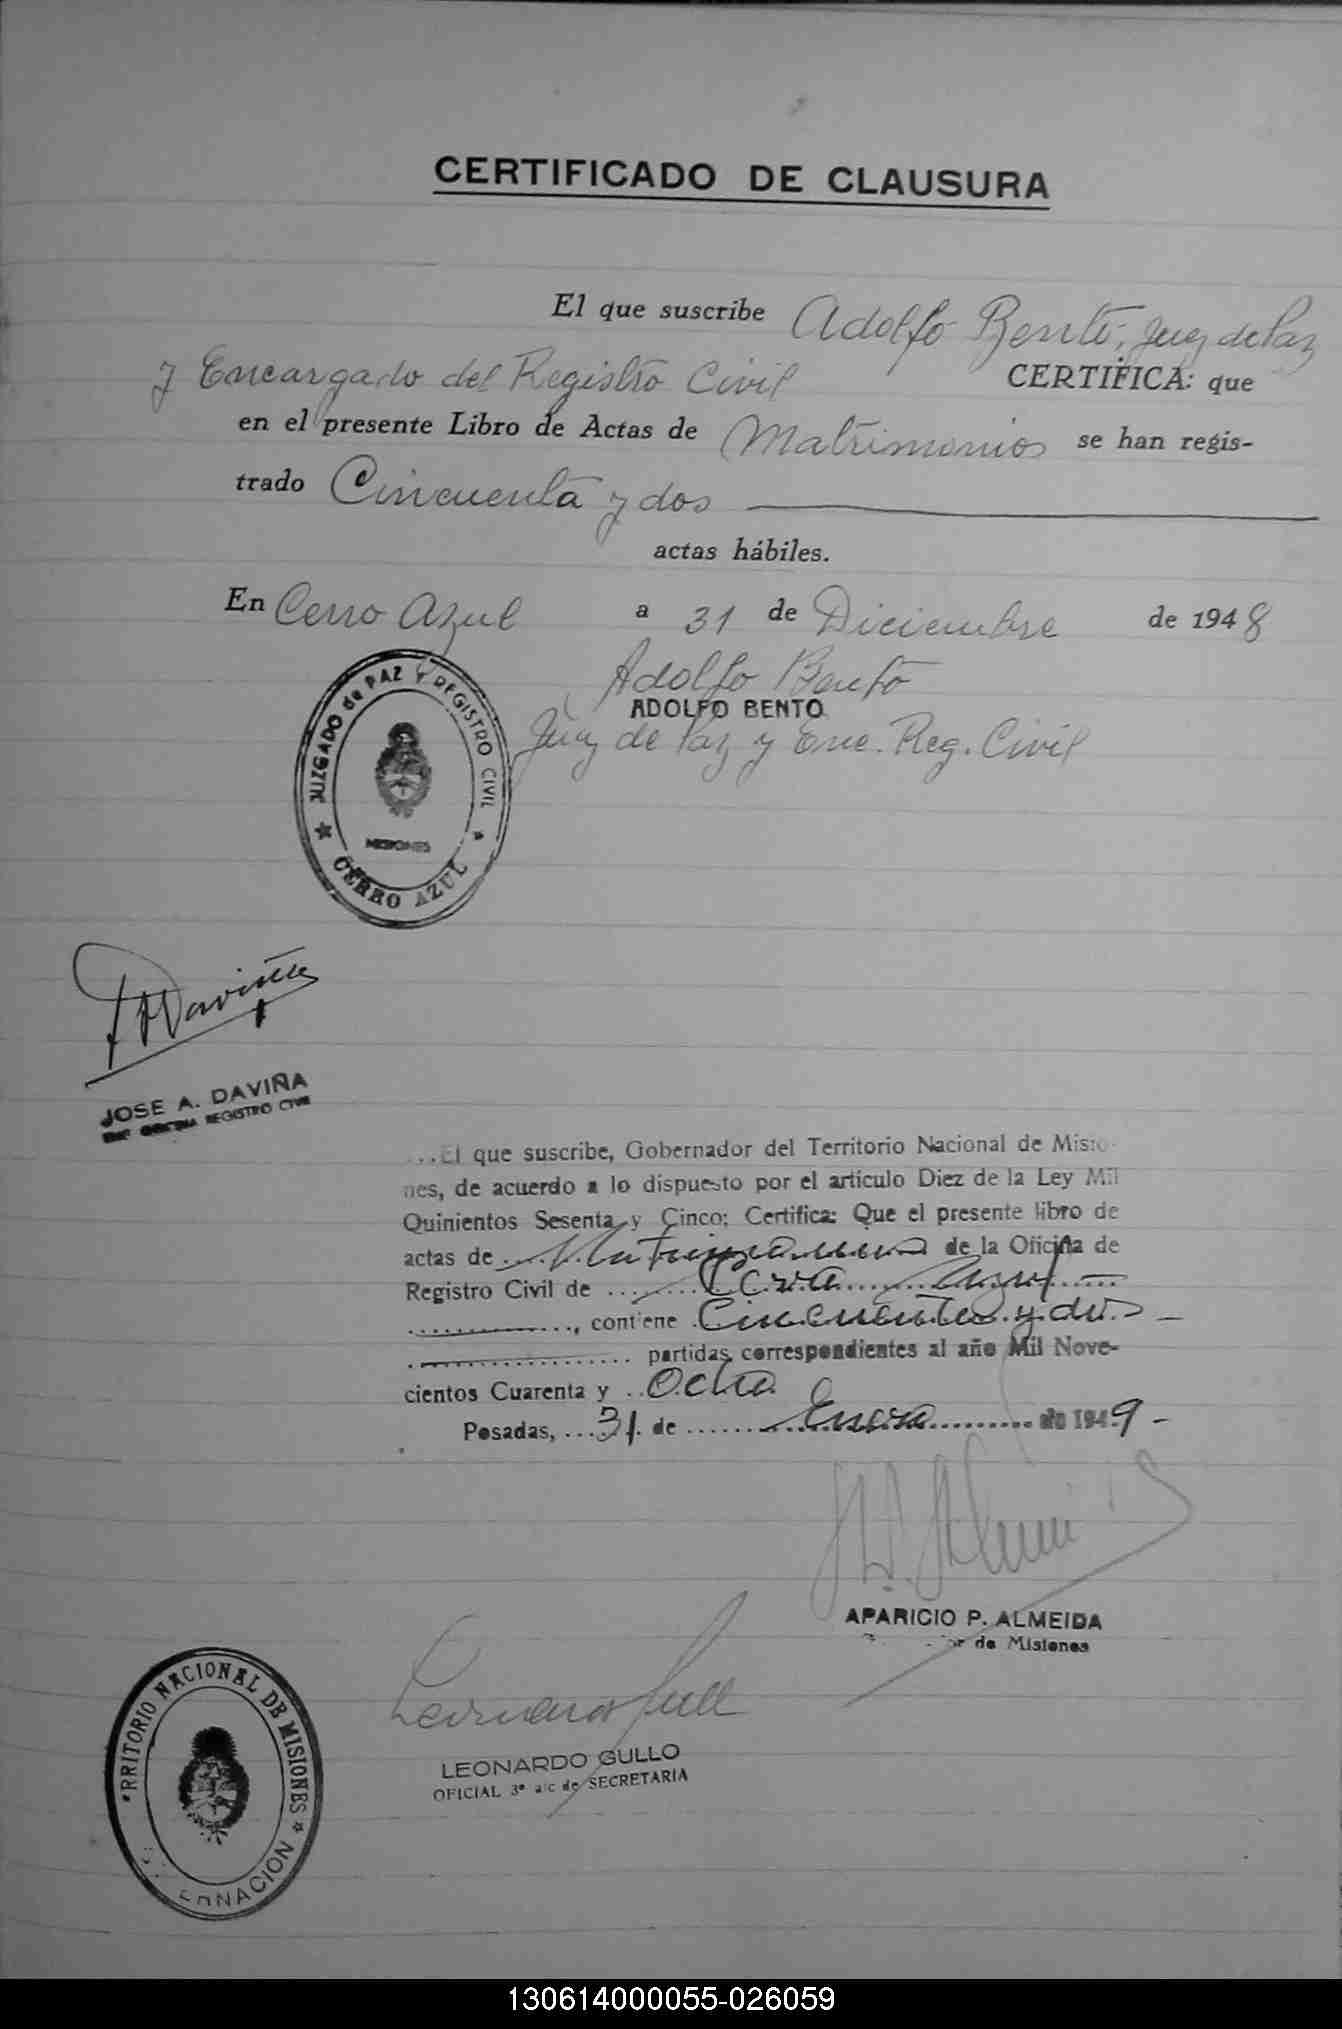 CERTIFICADO DE CLAUSURA
El que suscribe Adolfo Bento, Juez de Paz
y Encargado del Registro Civil CERTIFICA: que
en el presente Libro de Actas de Matrimonios se han regis-
trado Cincuenta y dos
actas hábiles.
En Cerro Azul a 31 de Diciembre de 1948
Adolfo Bento
ADOLFO BENTO
Juez de Paz y Enc. Reg. Civil
JUZGADO de PAZ Y REGISTRO CIVIL
MISIONES
CERRO AZUL
JOSE A. DAVIÑA
OFICINA REGISTRO CIVIL
El que suscribe, Gobernador del Territorio Nacional de Misio-
nes, de acuerdo a lo dispuesto por el artículo Diez de la Ley Mil
Quinientos Sesenta y Cinco; Certifica: Que el presente libro de
actas de Matrimonios de la Oficina de
Registro Civil de Cerro Azul
, contiene Cincuenta y dos
partidas correspondientes al año Mil Nove-
cientos Cuarenta y Ocho
Posadas, 31 de Enero de 1949
APARICIO P. ALMEIDA
de Misiones
LEONARDO GULLO
OFICIAL 3º a/c de SECRETARIA
RRITORIO NACIONAL DE MISIONES
RNACION
130614000055-026059